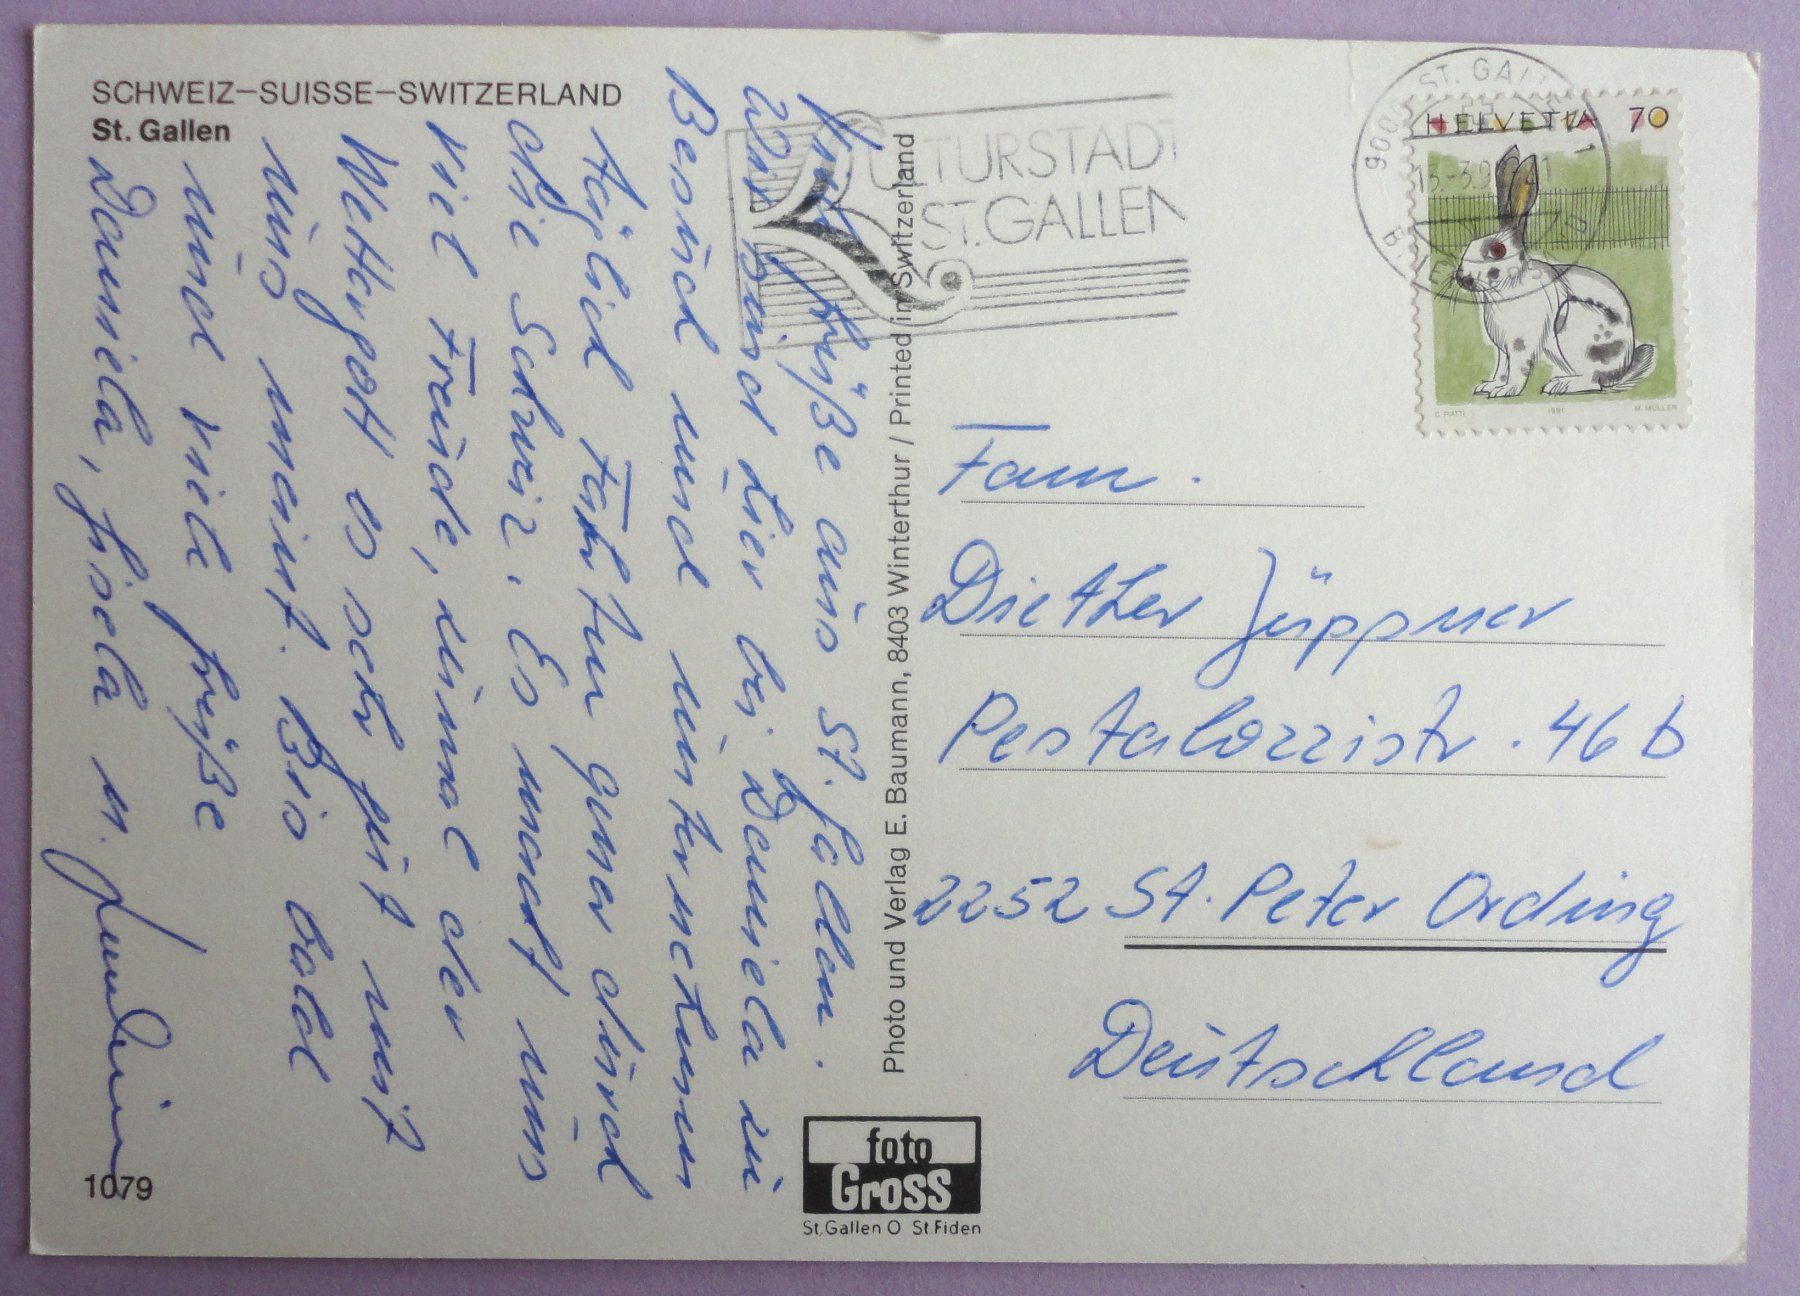 SCHWEIZ–SUISSE–SWITZERLAND
St. Gallen
Viele Grüße aus St. Gallen.
Wir sind hier bei Daniela zu
Besuch und unternehmen
täglich Fahrten quer durch
die Schweiz. Es macht uns
viel Freude, zumal der
Wettergott es sehr gut mit
uns meint. Bis bald
und viele Grüße
Daniela, Gisela u.
1079
Photo und Verlag E. Baumann, 8403 Winterthur / Printed in Switzerland
foto
Gross
St.Gallen O St.Fiden
KULTURSTADT
ST. GALLEN
9001 ST. GALLEN 1
13.-3.9
BRIEFVERSAND
HELVETIA 70
C. PIATTI 1991 M. MÜLLER
Fam.
Diether Jüppner
Pestalozzistr. 46 b
2252 St. Peter Ording
Deutschland